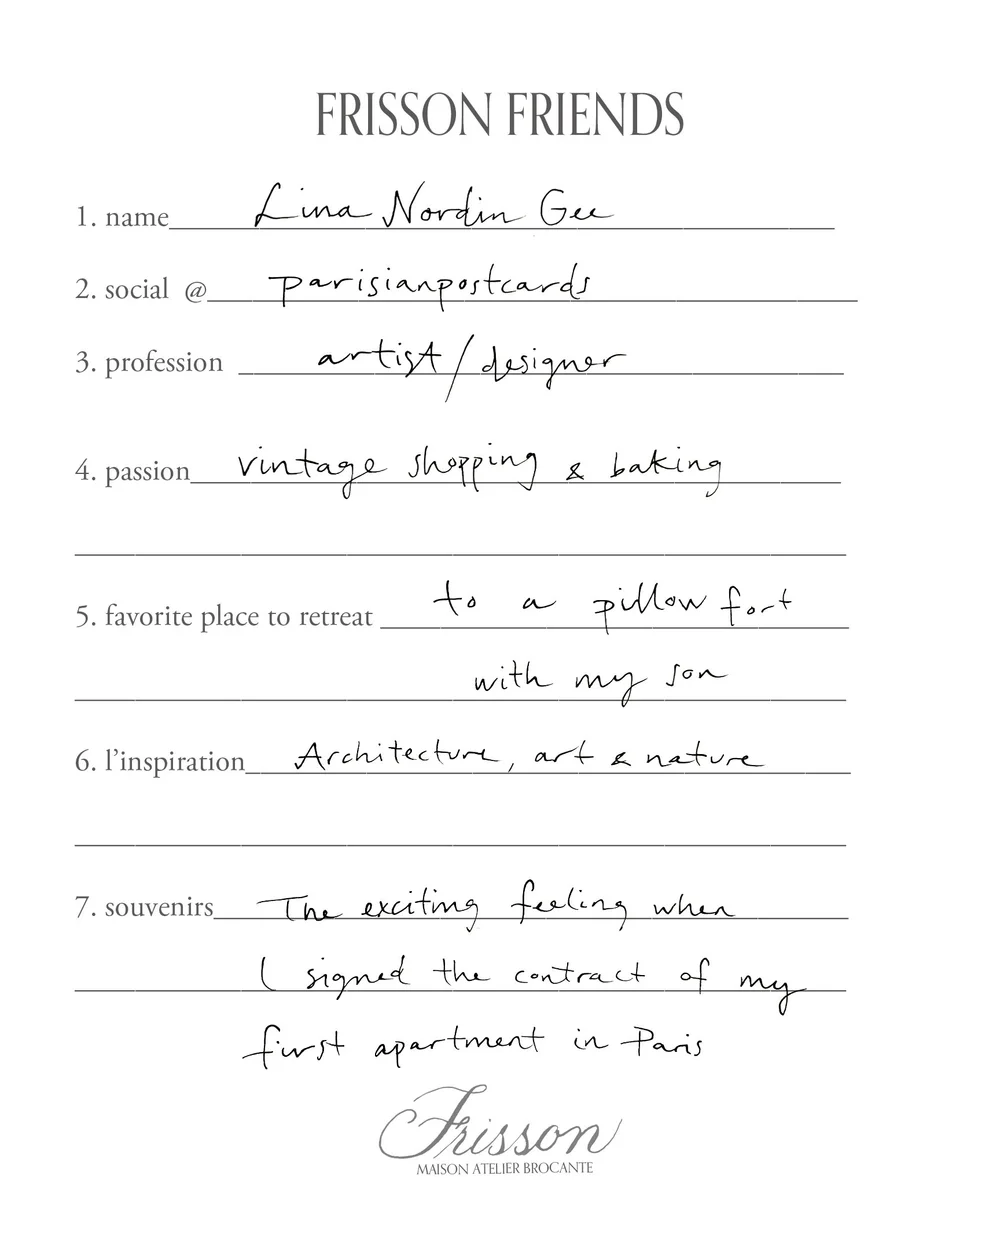 FRISSON FRIENDS
1. name Lina Nordin Gee
2. social @ parisianpostcards
3. profession artist/designer
4. passion vintage shopping & baking
5. favorite place to retreat to a pillow fort
with my son
6. l'inspiration Architecture, art & nature
7. souvenirs The exciting feeling when
I signed the contract of my
first apartment in Paris
Frisson
MAISON ATELIER BROCANTE